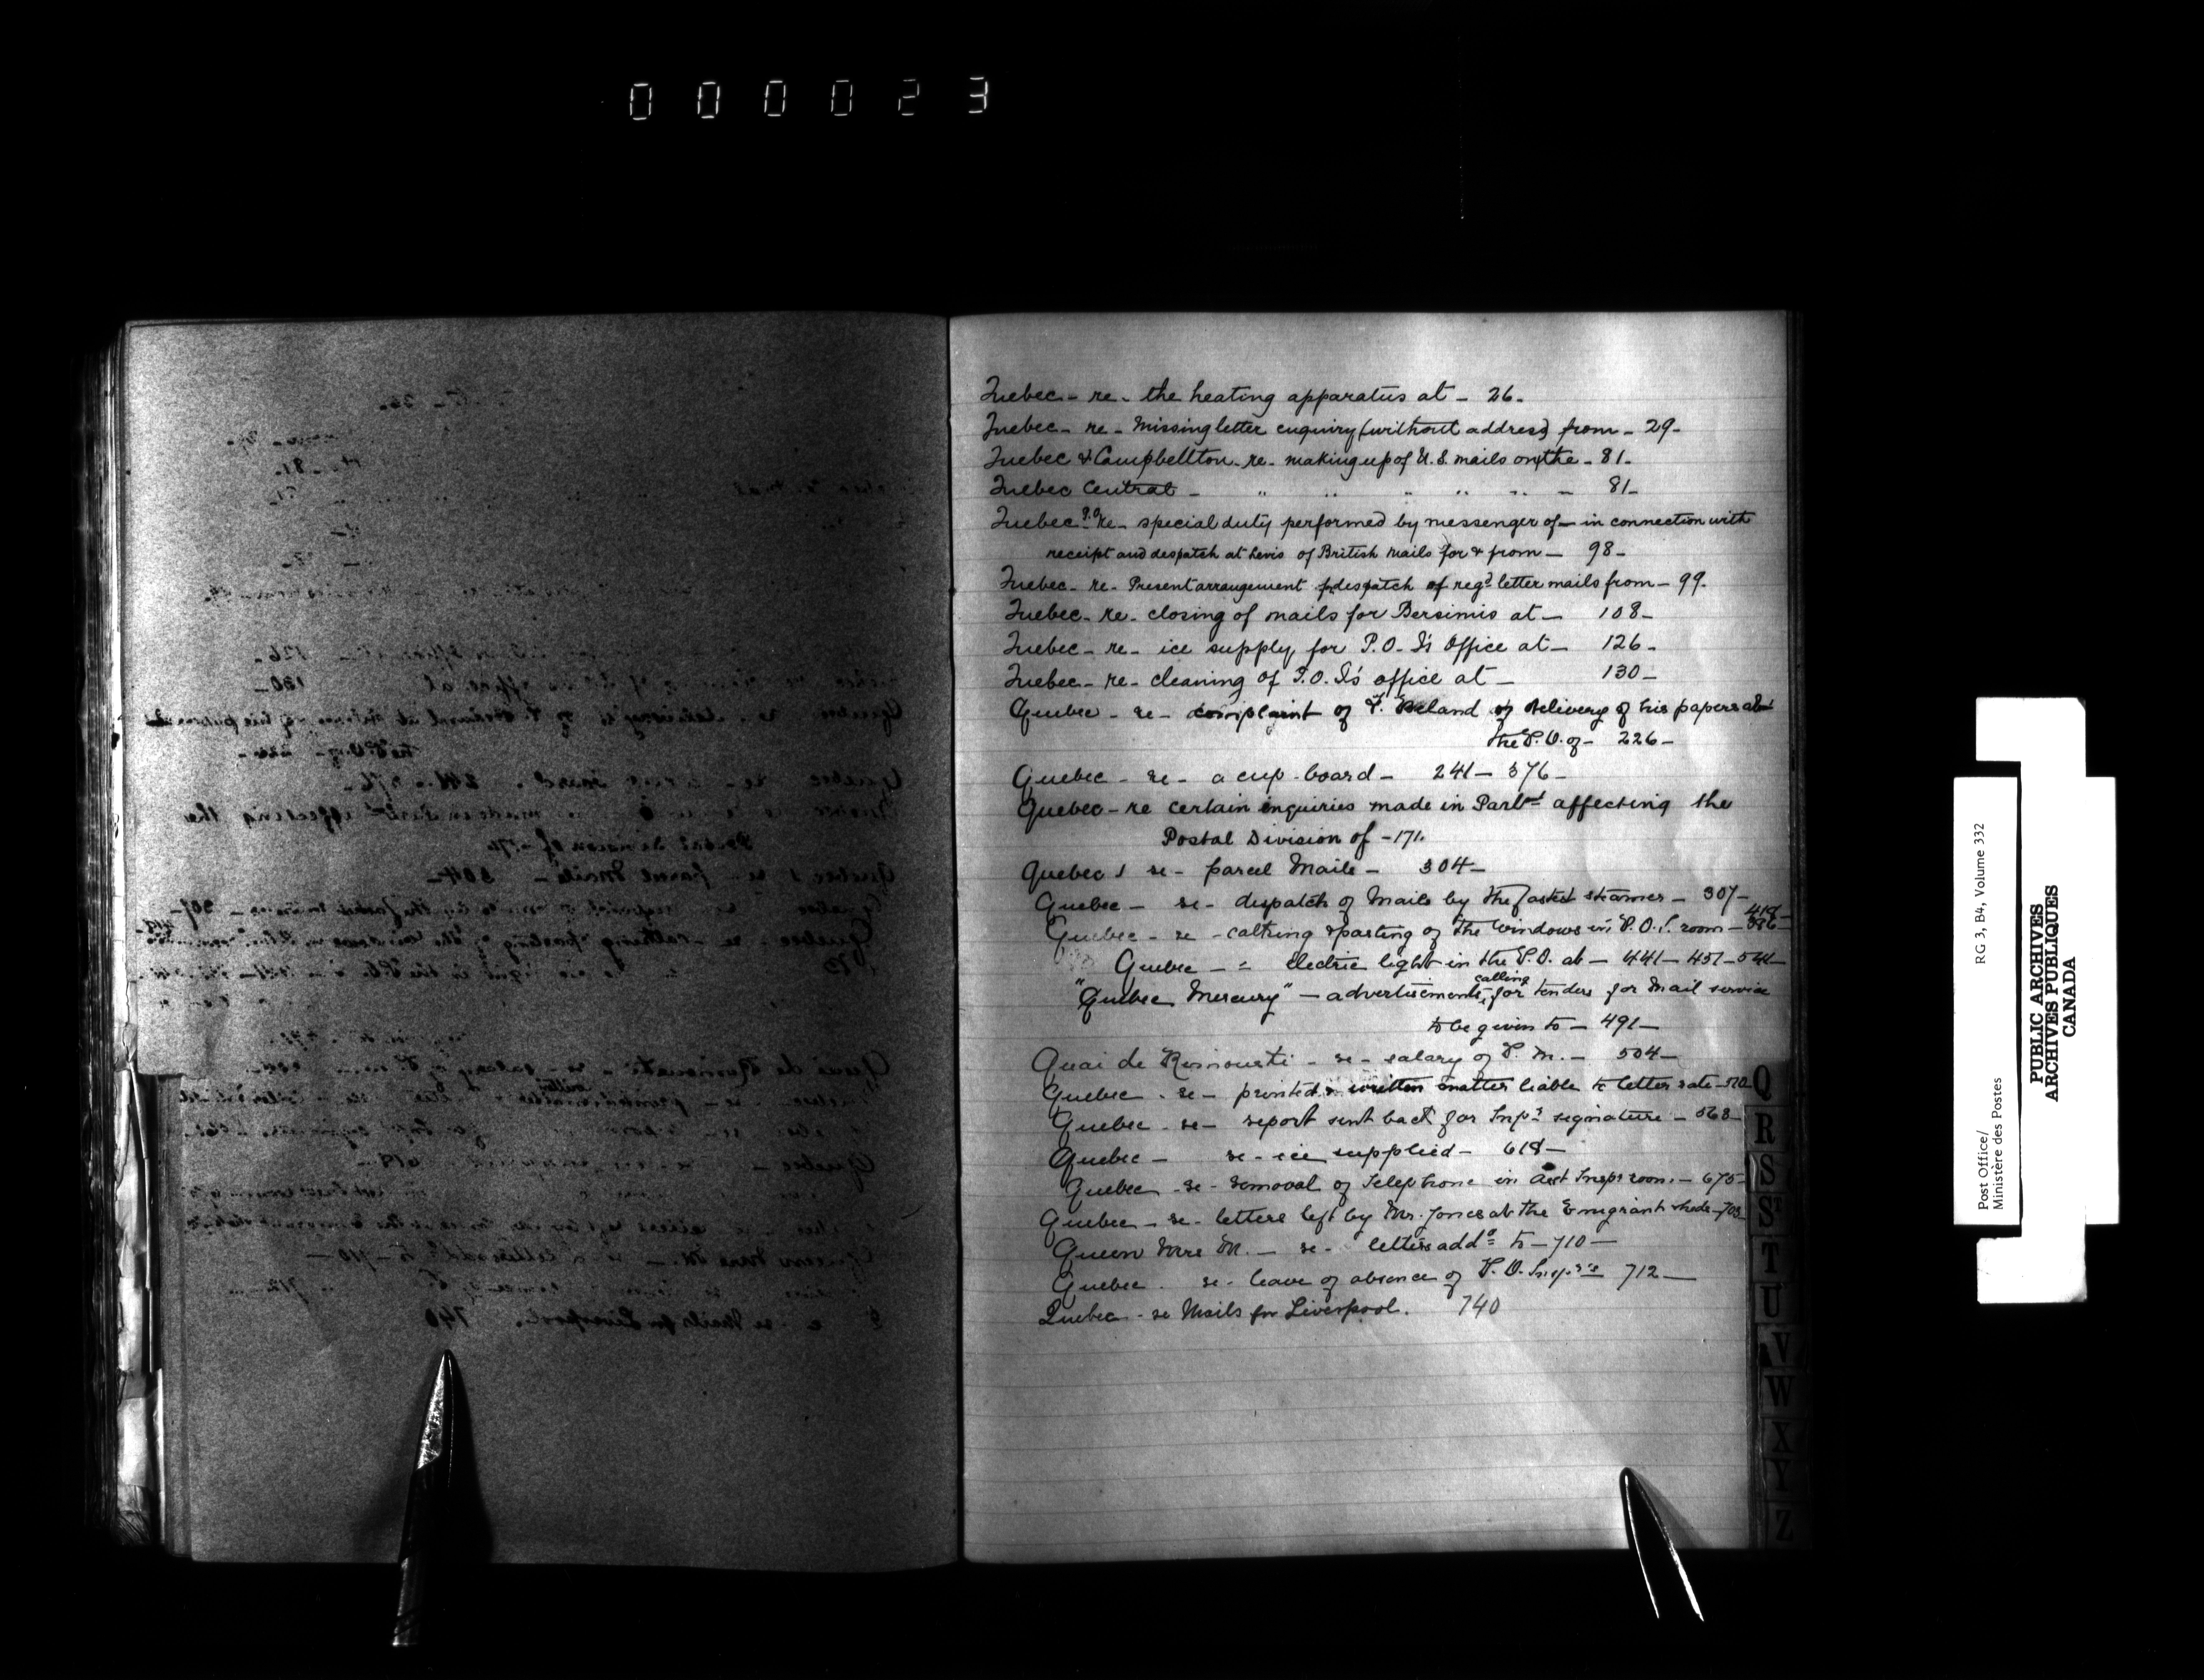 000023
Quebec - re - the heating apparatus at - 26 -
Quebec - re - Missing letter enquiry (without address) from - 29 -
Quebec & Campbellton - re - making up of U.S. mails on the - 81 -
Quebec Central - " " " " " - 81 -
Quebec P.O. re - special duty performed by messenger of - in connection with
receipt and despatch at Levis of British Mails for & from - 98 -
Quebec - re - Present arrangement for despatch of regd letter mails from - 99.
Quebec - re - closing of mails for Bersimis at - 108 -
Quebec - re - ice supply for P.O. I's Office at - 126 -
Quebec - re - cleaning of P.O. I's office at - 130 -
Quebec - re - complaint of F. Beland of delivery of his papers at
the P.O. of - 226 -
Quebec - re - a cup-board - 241 - 376 -
Quebec - re certain enquiries made in Parlt affecting the
Postal Division of - 171.
Quebec re - parcel Mails - 304 -
Quebec - re - despatch of Mails by the fastest steamer - 307 -
Quebec - re - calking & pasting of the windows in P.O.I. room - 386 - 418 -
Quebec - " electric light in the P.O. at - 441 - 451 - 541 -
"Quebec Mercury" - advertisements calling for tenders for Mail service
to be given to - 491 -
Quai de Rimouski - re - salary of P.M. - 504 -
Quebec - re - printed & written matter liable to letter rate - 520
Quebec - re - report sent back for Inspr signature - 568 -
Quebec - re - ice supplied - 618 -
Quebec - re - removal of Telephone in Asst Inspr room - 675 -
Quebec - re - letters left by Mr. Jones at the Emigrant sheds - 703
Queen Mrs M. - re - letters addd to - 710 -
Quebec - re - leave of absence of P.O. Inspr's 712 -
Quebec - re Mails for Liverpool. 740
Q
R
S
St
T
U
V
W
X
Y
Z
Post Office/
Ministère des Postes
RG 3, B4, Volume 332
PUBLIC ARCHIVES
ARCHIVES PUBLIQUES
CANADA